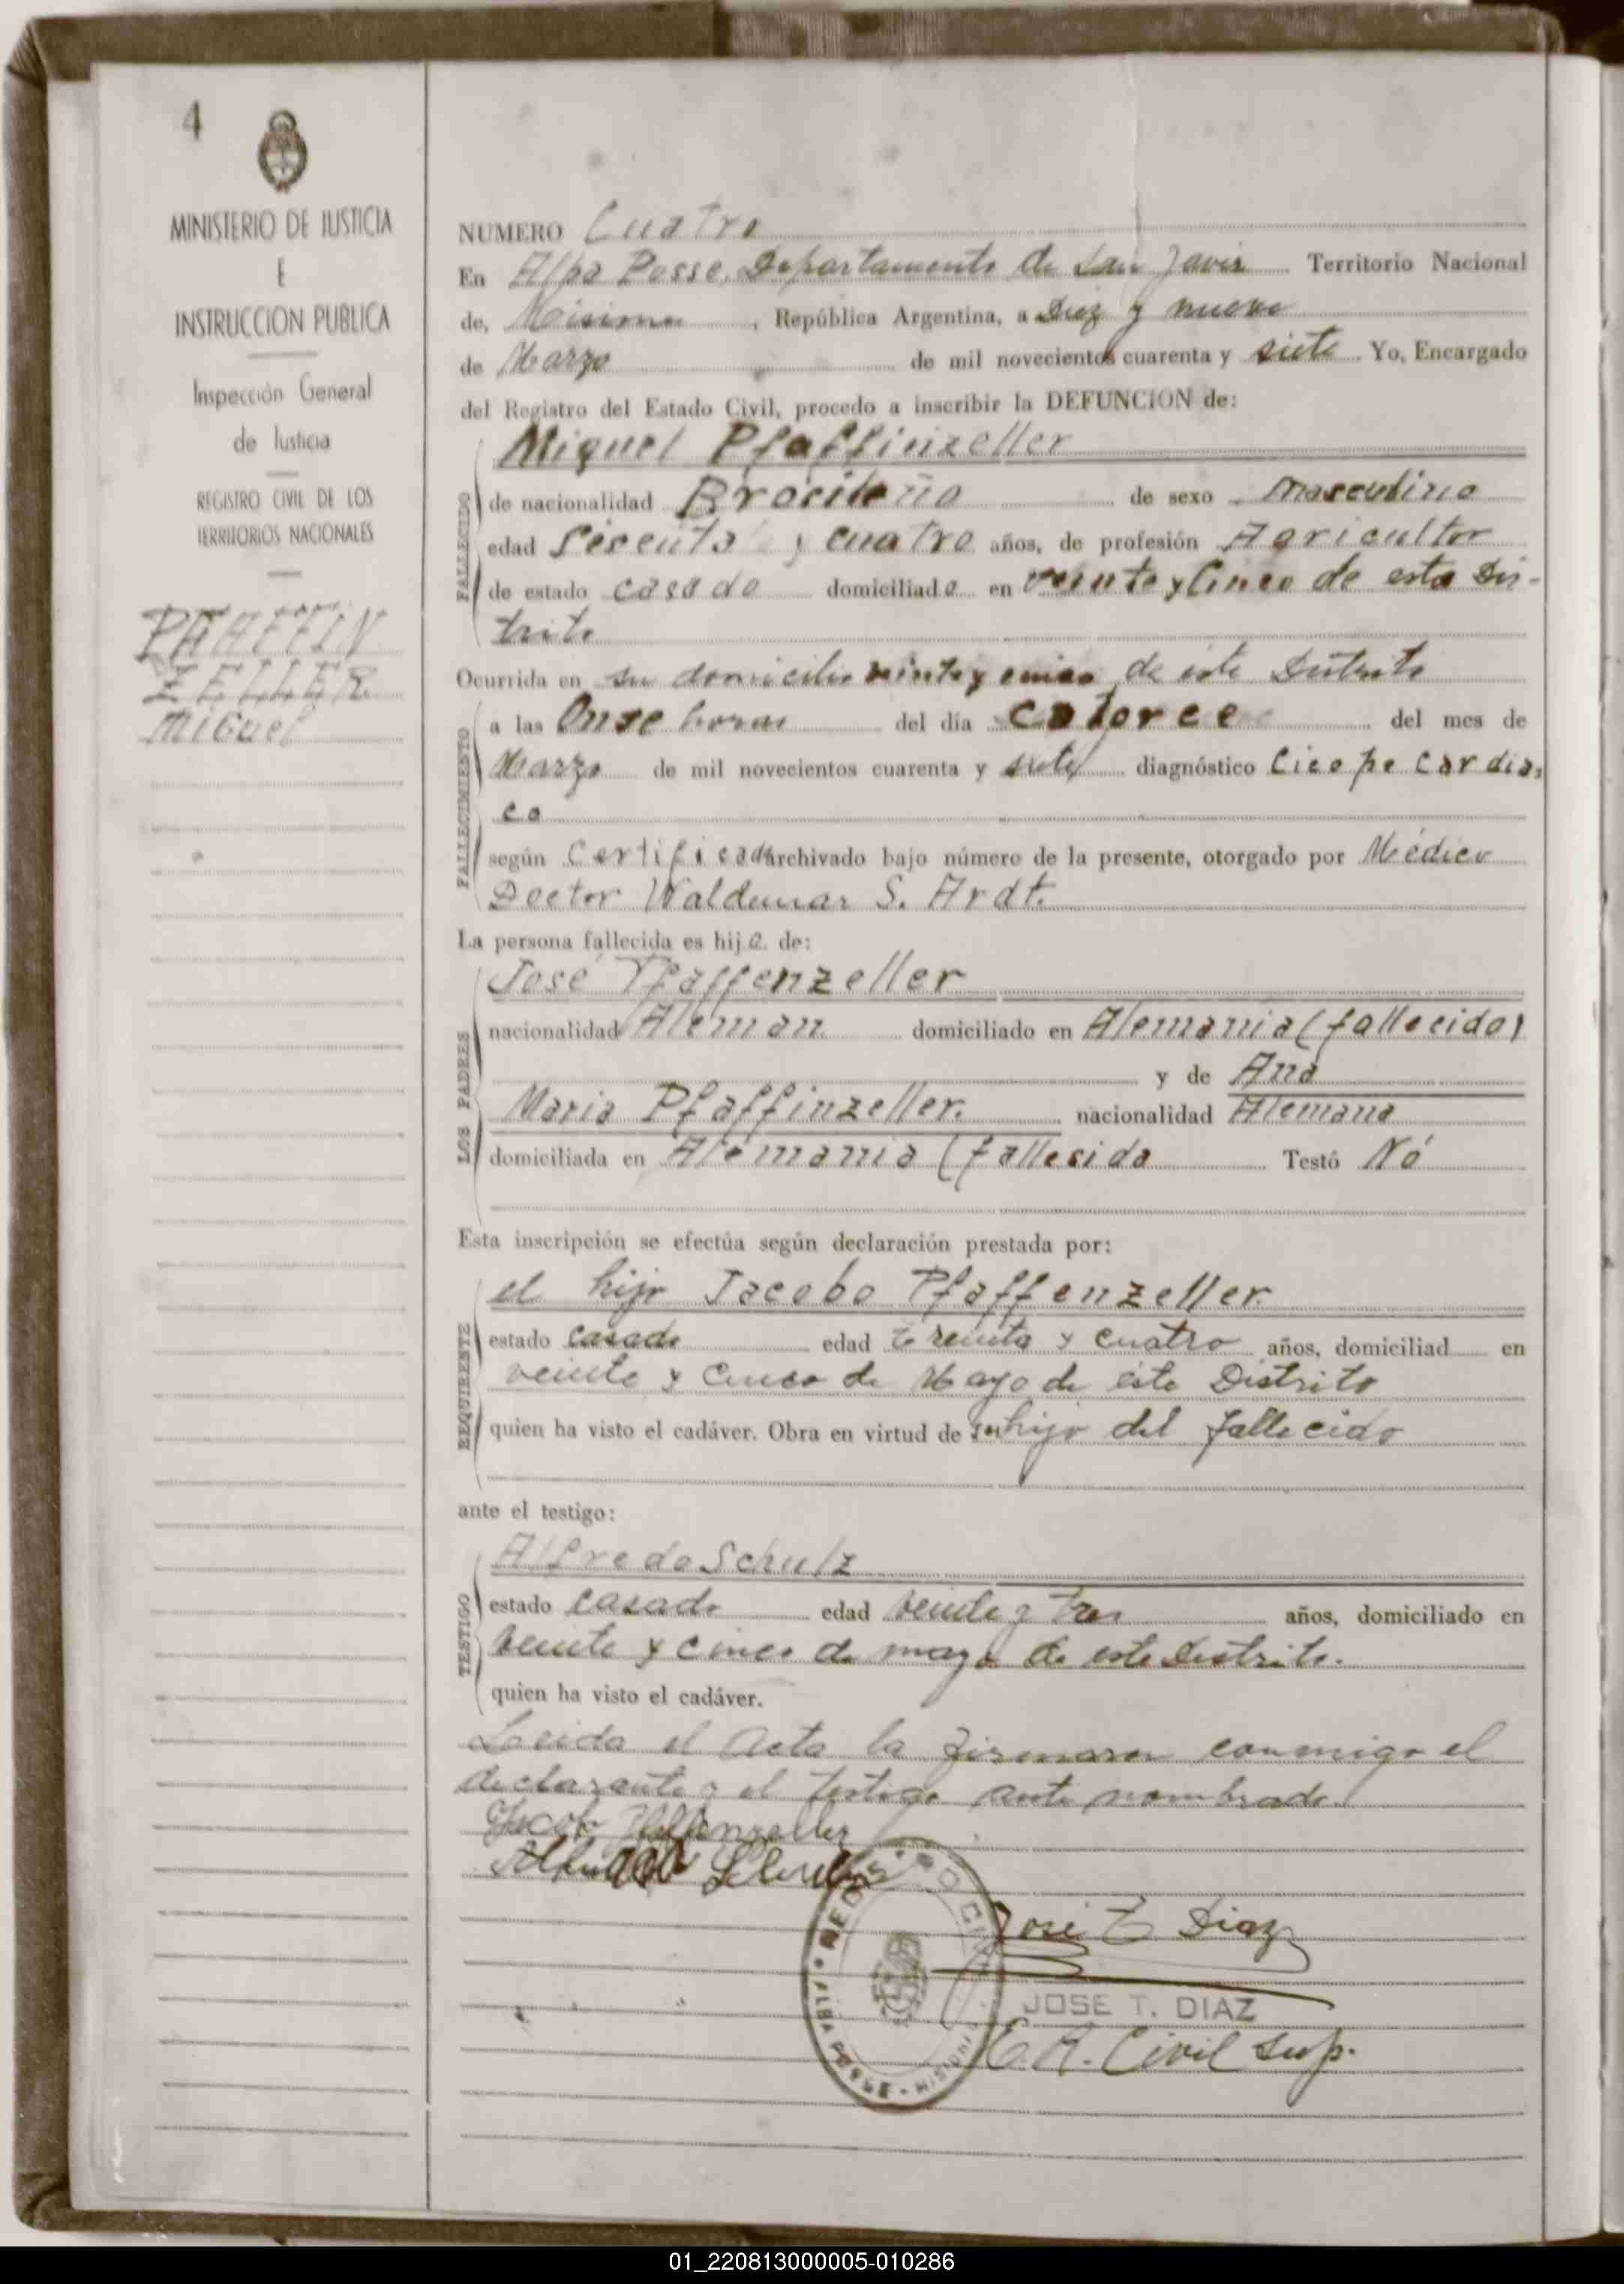 4
MINISTERIO DE JUSTICIA
E
INSTRUCCION PUBLICA
Inspección General
de Justicia
REGISTRO CIVIL DE LOS
TERRITORIOS NACIONALES
PFAFFIN
ZELLER
MIGuel
NUMERO Cuatro
En Alba Posse, Departamento de San Javier Territorio Nacional
de, Misiones, República Argentina, a Diez y nueve
de Marzo de mil novecientos cuarenta y siete. Yo, Encargado
del Registro del Estado Civil, procedo a inscribir la DEFUNCION de:
FALLECIDO
Miguel Pfaffinzeller
de nacionalidad Brasileño de sexo masculino
edad Sesenta y cuatro años, de profesión Agricultor
de estado casado domiciliado en veinte y Cinco de esta Dis-
trito
Ocurrida en su domicilio veinte y cinco de este Distrito
FALLECIMIENTO
a las Onse horas del día catorce del mes de
Marzo de mil novecientos cuarenta y siete diagnóstico Cicope Cardia,
co
según Certificado archivado bajo número de la presente, otorgado por Médico
Doctor Waldemar S. Ardt.
La persona fallecida es hijo. de:
LOS PADRES
José Pfaffenzeller
nacionalidad Aleman domiciliado en Alemania (fallecido)
y de Ana
Maria Pfaffinzeller. nacionalidad Alemana
domiciliada en Alemania (fallesida Testó Nó
Esta inscripción se efectúa según declaración prestada por:
REQUIRENTE
el hijo Jacobo Pfaffenzeller
estado casado edad treinta y cuatro años, domiciliad en
veinte y Cinco de Mayo de este Distrito
quien ha visto el cadáver. Obra en virtud de ser hijo del fallecido
ante el testigo:
TESTIGO
Alfredo Schulz
estado casado edad veinte y tres años, domiciliado en
veinte y cinco de mayo de este Distrito.
quien ha visto el cadáver.
Leida el Acta la firmaron conmigo el
declarante y el testigo ante nombrado
Jacob Pfaffenzeller
Alfredo Schulz
REGISTRO CIVIL
ALBA POSSE - MISIONES
José T Diaz
JOSE T. DIAZ
E. R. Civil Sup.
01_220813000005-010286